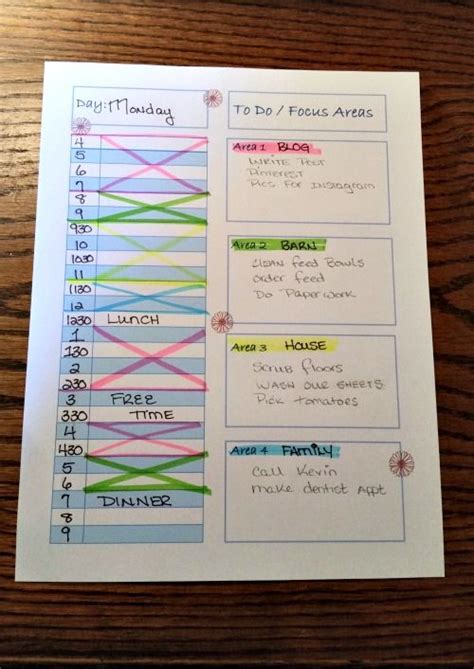 Day: Monday
4
5
6
7
8
9
930
10
1030
11
1130
12
1230 LUNCH
1
130
2
230
3 FREE
330 TIME
4
430
5
6
7 DINNER
8
9
To Do / Focus Areas
Area 1 BLOG
WRITE Post
Pinterest
Pics For Instagram
Area 2 BARN
CLEAN feed Bowls
order feed
Do Paperwork
Area 3 HOUSE
Scrub floors
WASH OUR SHEETS
Pick tomatoes
Area 4 FAMILY
Call Kevin
make dentist Appt